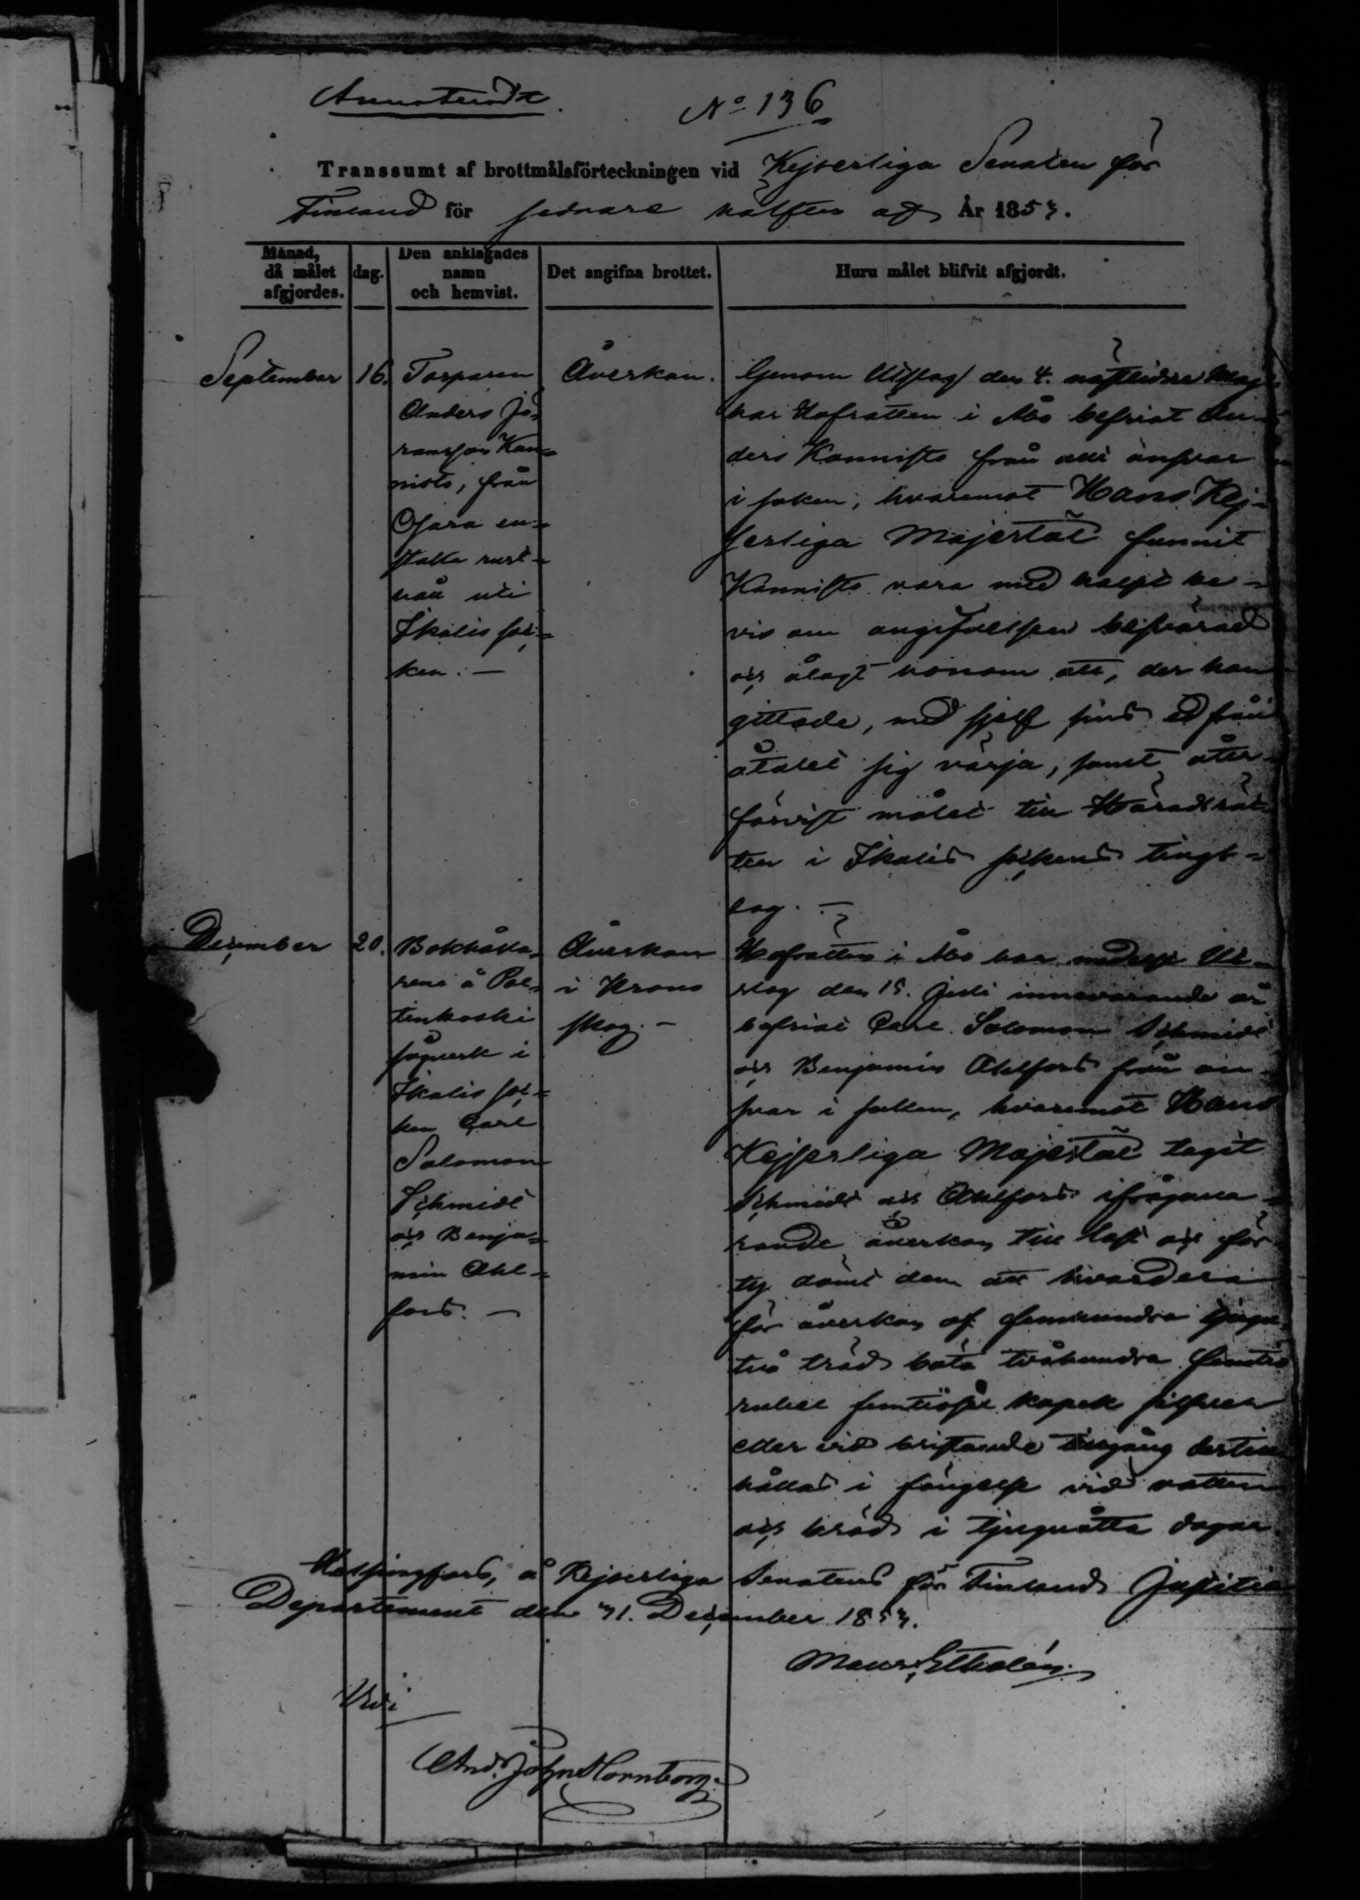 Annoteradt.
No 136
Transsumt af brottmålsförteckningen vid Kejserliga Senaten för
Finland för sednare hälften af År 1857.
Månad,
då målet
afgjordes.
dag.
Den anklagades
namn
och hemvist.
Det angifna brottet.
Huru målet blifvit afgjordt.
September
16.
Torparen
Anders Jö-
ransson Kan-
nisto, från
Ojara en-
stalla rust-
håll uti
Ikalis soc-
ken. —
Åverkan.
Genom Utslag den 4. nästlidne Maj
har Hofrätten i Åbo befriat An-
ders Kannisto från allt ansvar
i saken; hvaremot Hans Kej-
serliga Majestät funnit
Kannisto vara med halft be-
vis om angifvelsen besvärad
och ålagt honom att, der han
gittade, med sjelf sins ed från
åtalet sig värja, samt åter-
förvist målet till Häradsrät-
ten i Ikalis sockens tings-
lag. —
December
20.
Bokhålla-
rene å Pol-
tinkoski
sågverk i
Ikalis soc-
ken Carl
Solomon
Schmidt
och Benja-
min Ahl-
fors. —
Åverkan
i Krono
skog. —
Hofrätten i Åbo har medelst Ut-
slag den 15. Juli innevarande år
befriat Carl Solomon Schmidt
och Benjamin Ahlfors från an-
svar i saken, hvaremot Hans
Kejserliga Majestät lagt
Schmidt och Ahlfors ifrågava-
rande åverkan till last och för-
ty dömt dem att hvardera
för åverkan af femhundra tjugu-
två träd bota tvåhundra femtio
rubel femtiofyra kopek silfver
eller vid bristande tillgång dertill
hållas i fängelse vid vatten
och bröd i tjuguåtta dagar.
Helsingfors, å Kejserliga Senatens för Finland Justitie
Departement den 31. December 1857.
Etholén.
Vidi
And. John Hornborg.